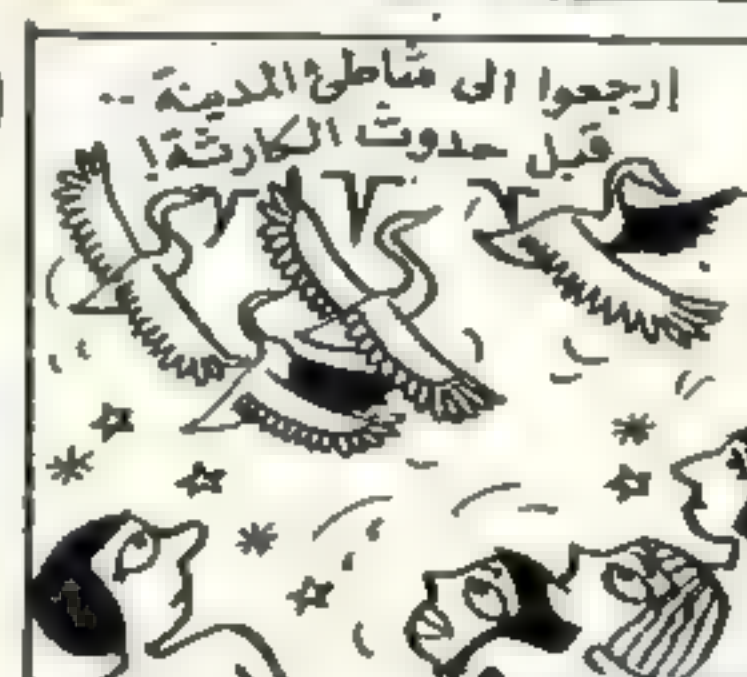 إرجعوا الى شاطئ المدينة ..
قبل حدوث الكارثة!